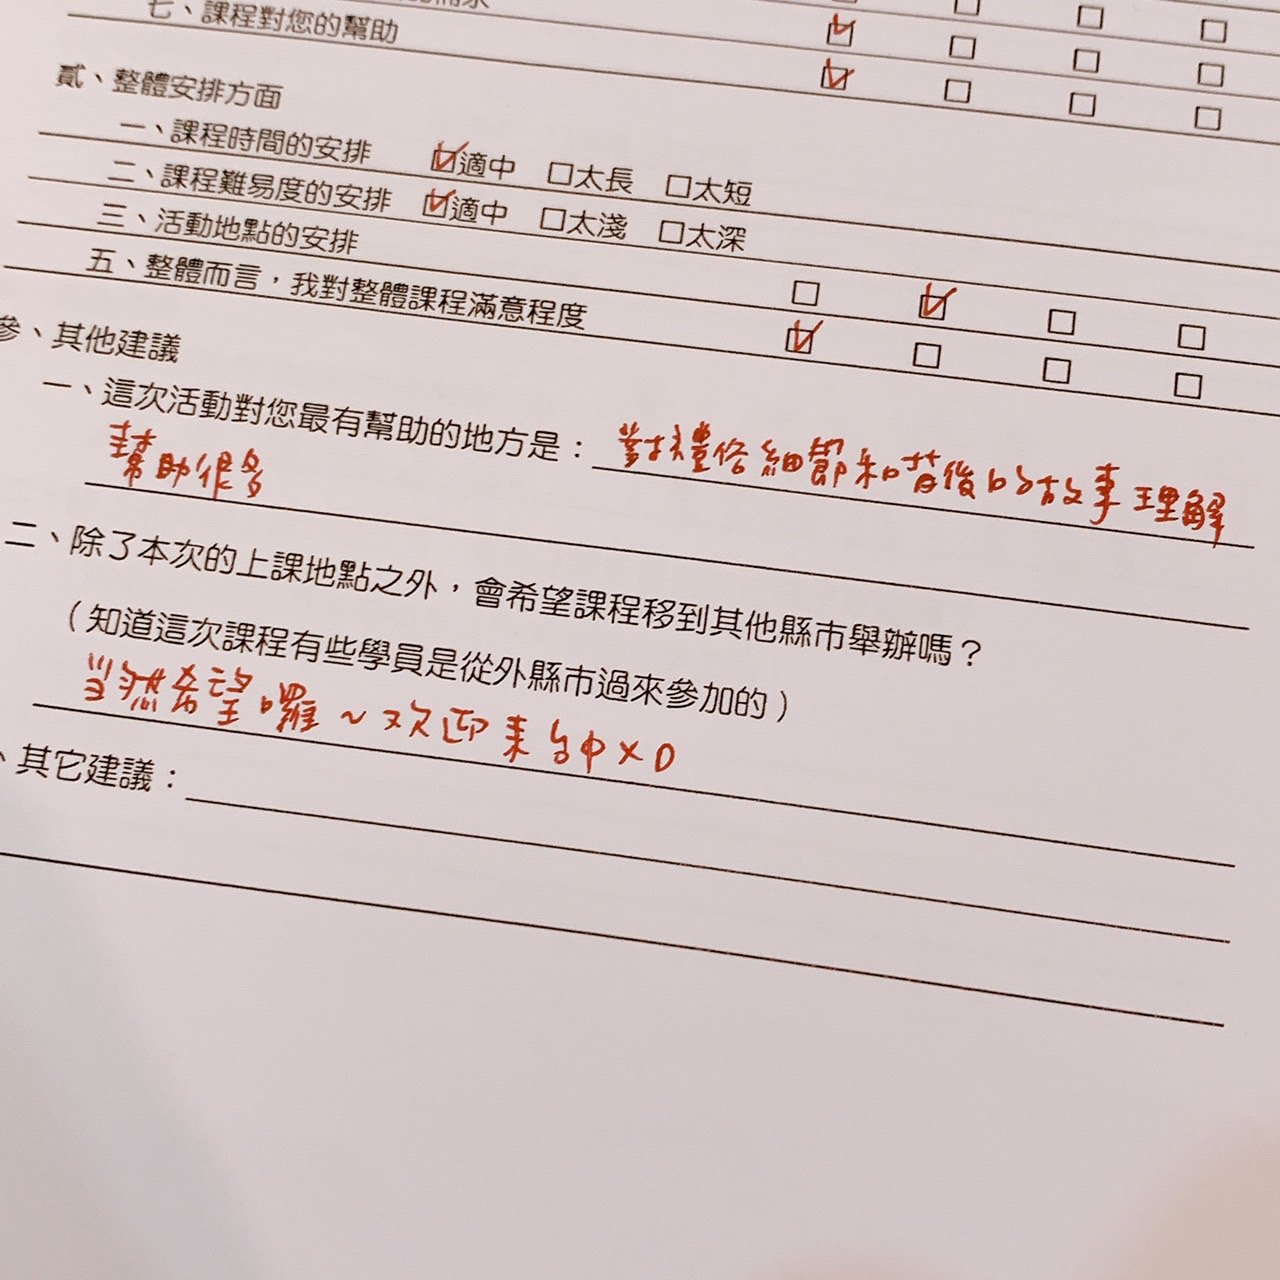 七、課程對您的幫助
貳、整體安排方面
一、課程時間的安排 ☑適中 □太長 □太短
二、課程難易度的安排 ☑適中 □太淺 □太深
三、活動地點的安排 □ ☑ □ □
五、整體而言，我對整體課程滿意程度 ☑ □ □ □
參、其他建議
一、這次活動對您最有幫助的地方是：對禮俗細節和背後的故事理解
幫助很多
二、除了本次的上課地點之外，會希望課程移到其他縣市舉辦嗎？
（知道這次課程有些學員是從外縣市過來參加的）
当然希望囉～欢迎来台中XD
、其它建議：